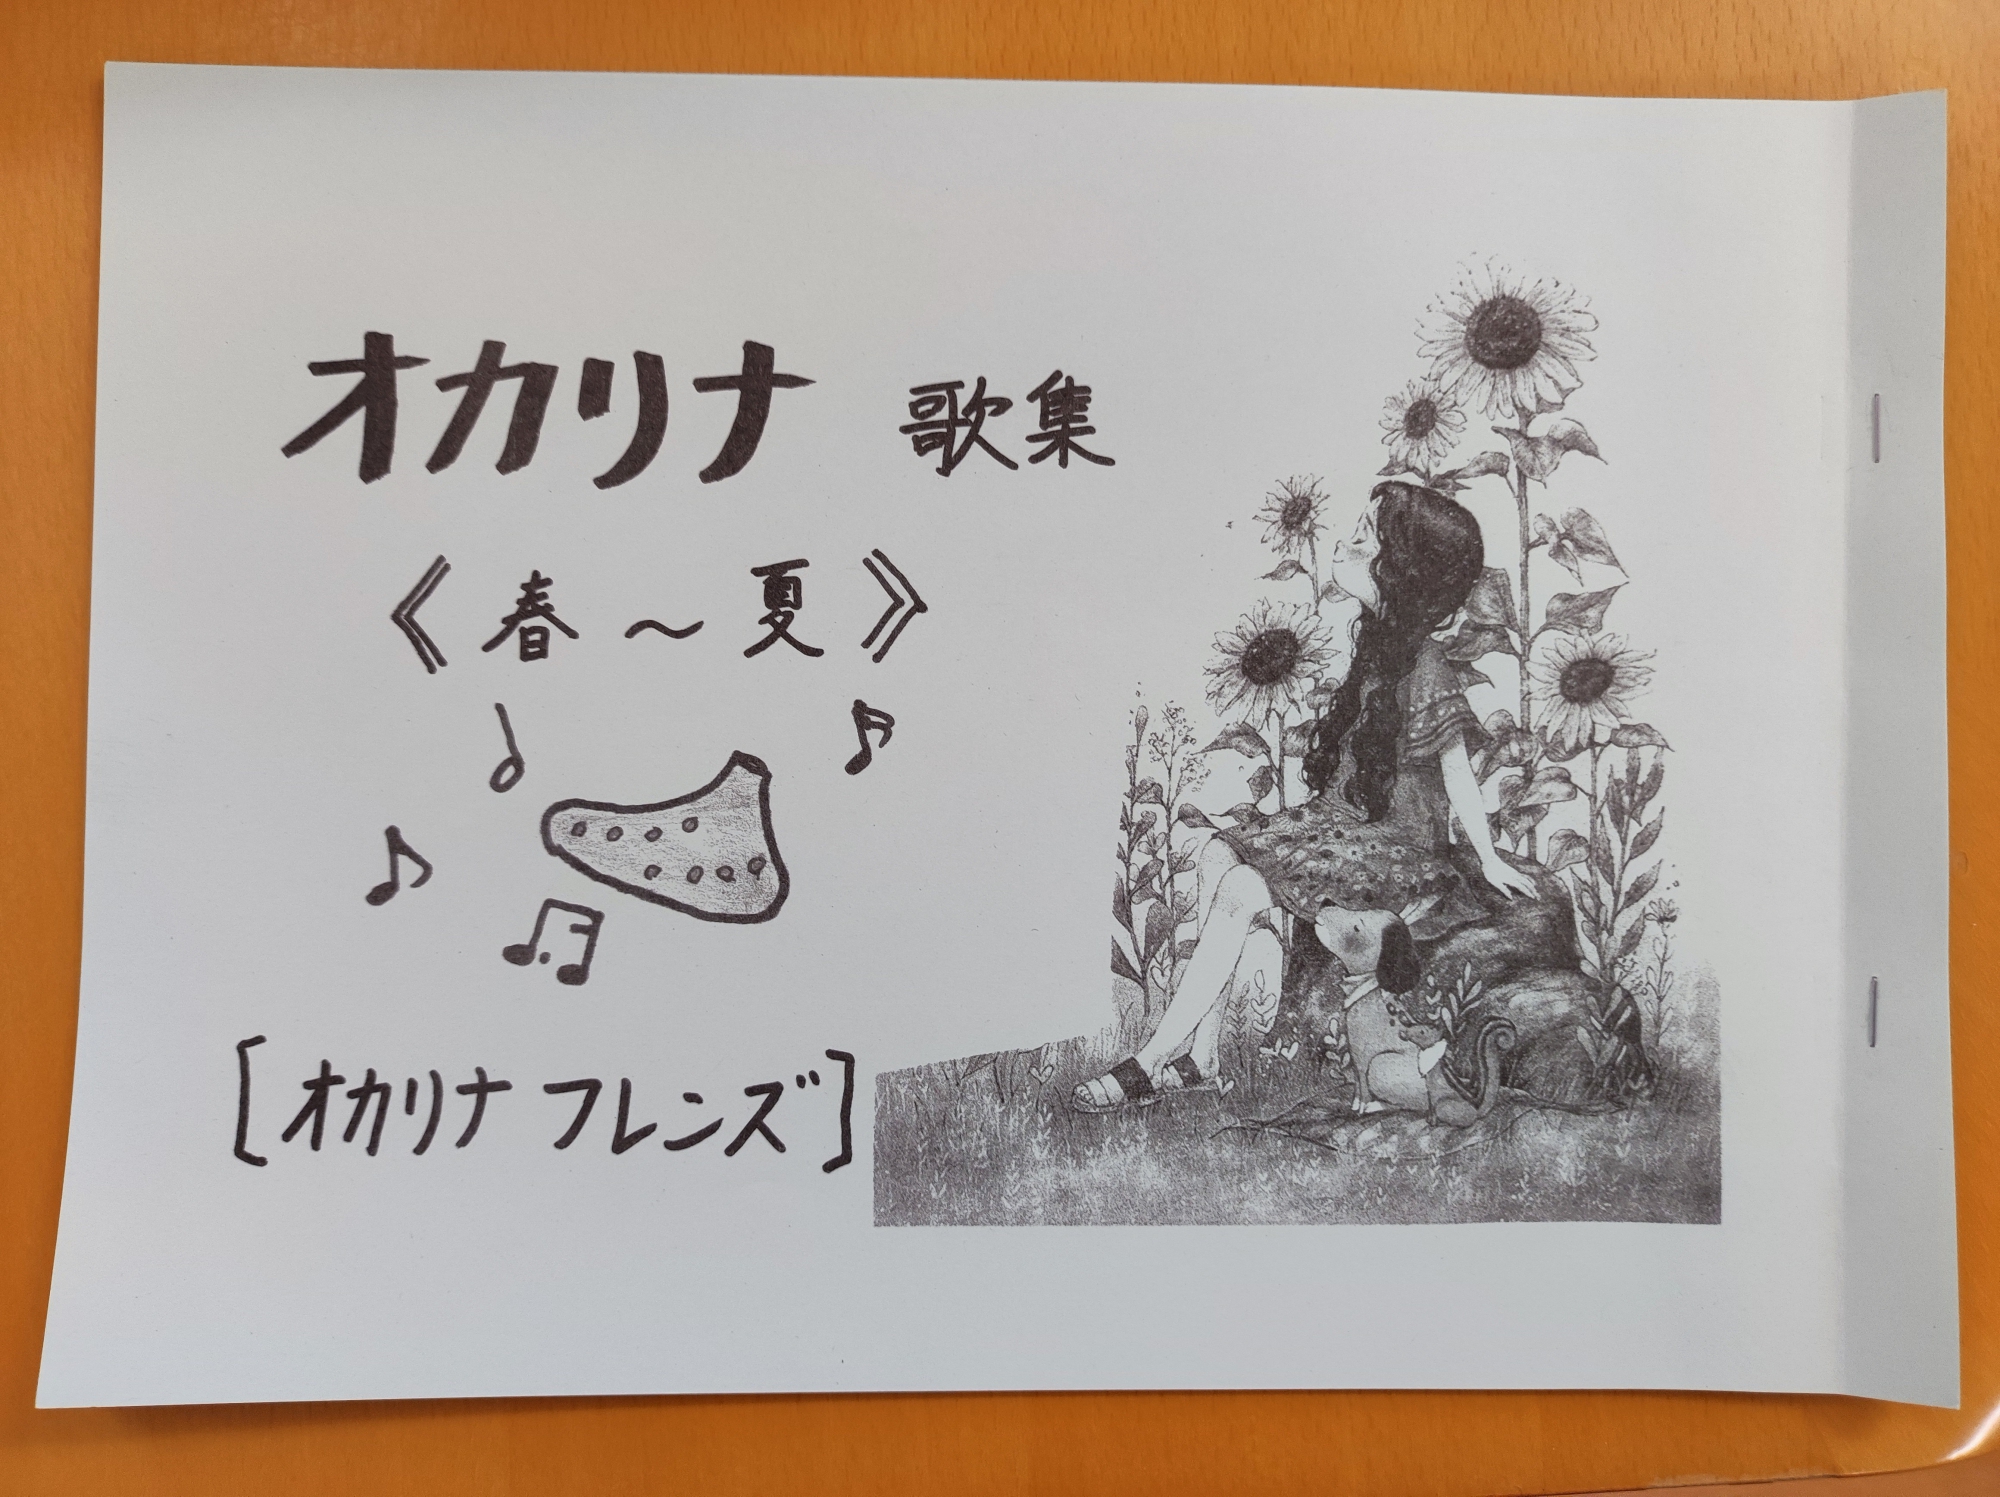 オカリナ 歌集
《春～夏》
[オカリナ フレンズ]